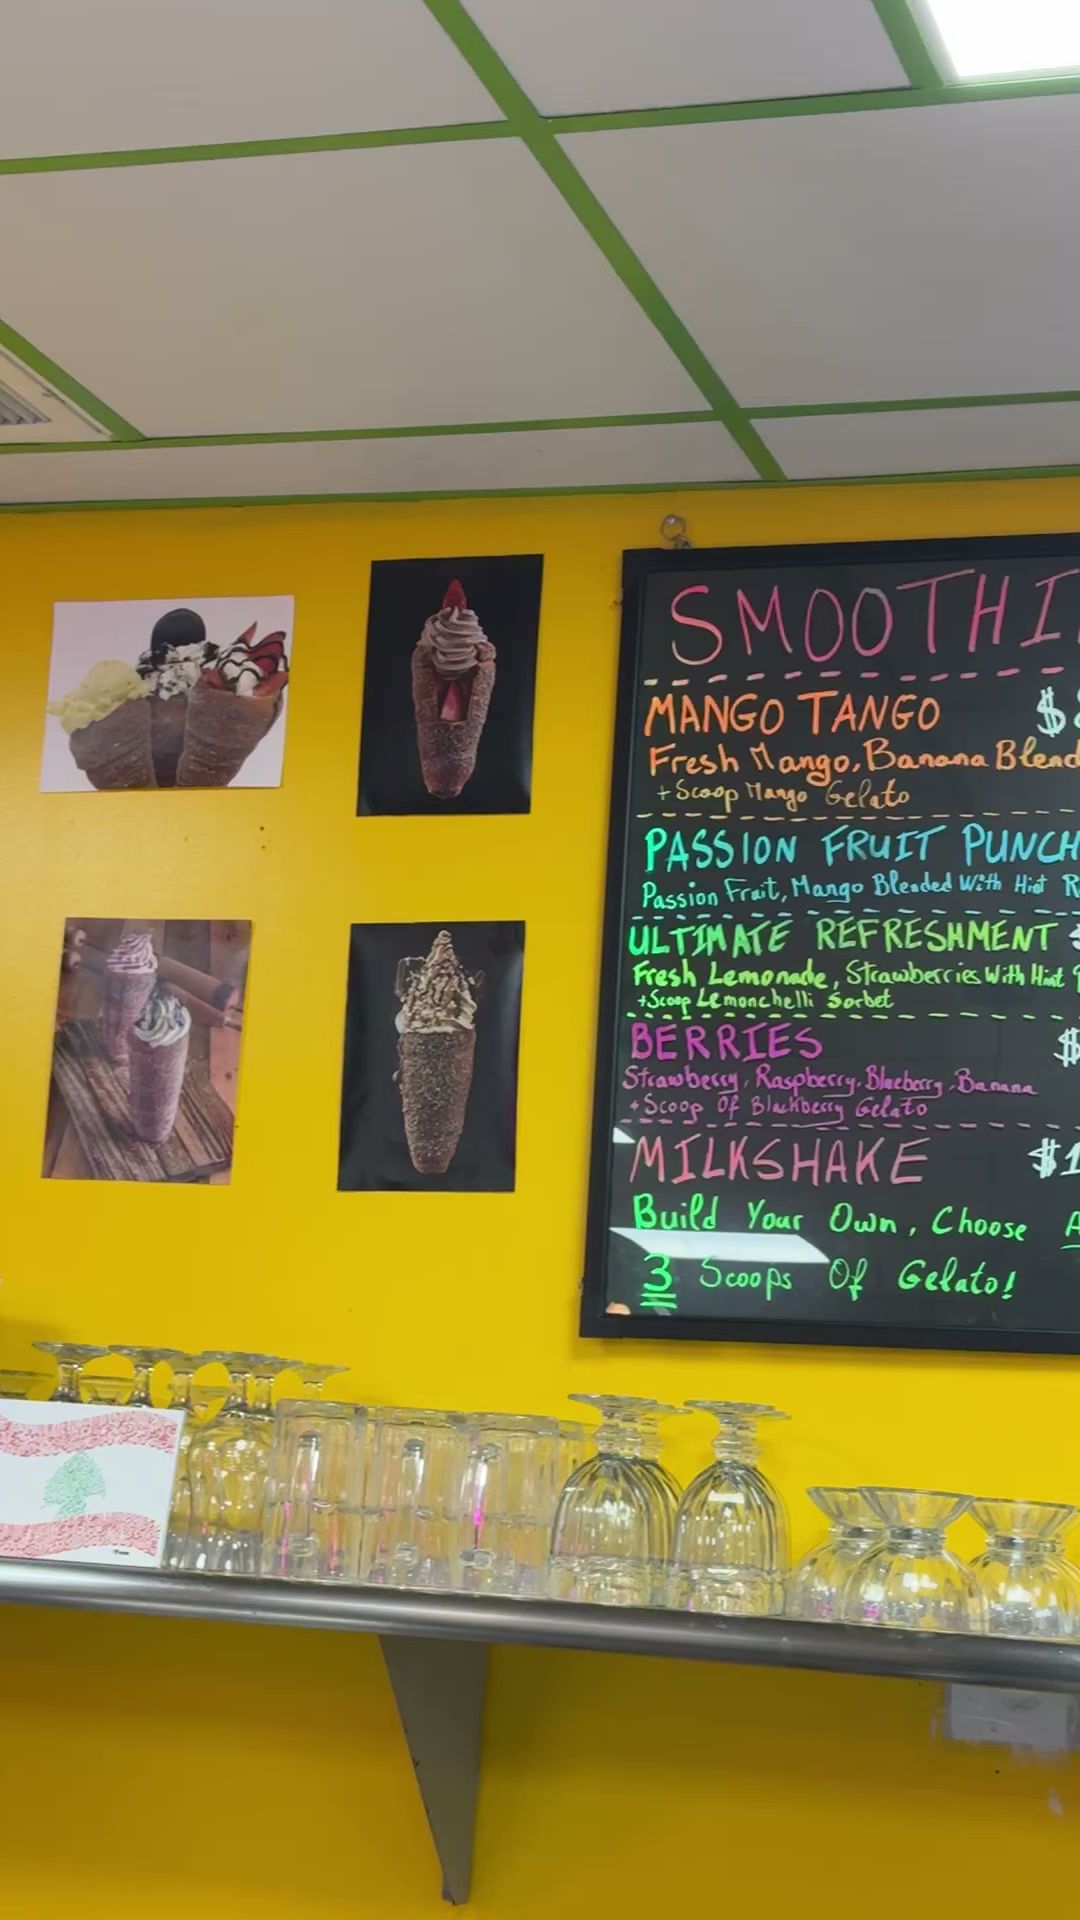 SMOOTHI
MANGO TANGO $
Fresh Mango, Banana Blend
+ Scoop Mango Gelato
PASSION FRUIT PUNCH
Passion Fruit, Mango Blended With Hint R
ULTIMATE REFRESHMENT $
Fresh Lemonade, Strawberries With Hint
+Scoop Lemonchelli Sorbet
BERRIES $
Strawberry, Raspberry, Blueberry, Banana
+ Scoop Of Blackberry Gelato
MILKSHAKE $1
Build Your Own, Choose A
3 Scoops Of Gelato!